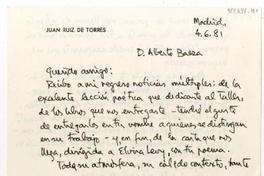 JUAN RUIZ DE TORRES
Madrid,
4.6.81
D. Alberto Baeza
Querido amigo:
Recibo a mi regreso noticias múltiples: de la
excelente lección poética que dedicaste al Taller,
de los libros que nos entregaste - tendré el gusto
de entregarlos en tu nombre a quienes se distingan
en su trabajo - y en fin, de la carta que nos
llega, dirigida a Elvira Levy, con tu poema.
Toda su atmósfera, su cálido contexto,